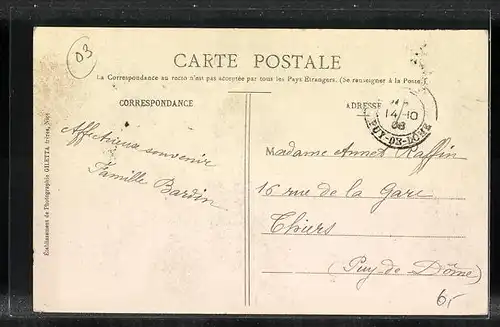 03
CARTE POSTALE
La Correspondance au recto n'est pas acceptée par tous les Pays Etrangers. (Se renseigner à la Poste.)
CORRESPONDANCE
Affectueux souvenir
Famille Bardin
ADRESSE
14-10
08
PUY-DE-DOME
Madame Annet Raffin
16 rue de la Gare
Thiers
(Puy de Dôme)
6,
Établissement de Photographie GILETTA frères, Nice